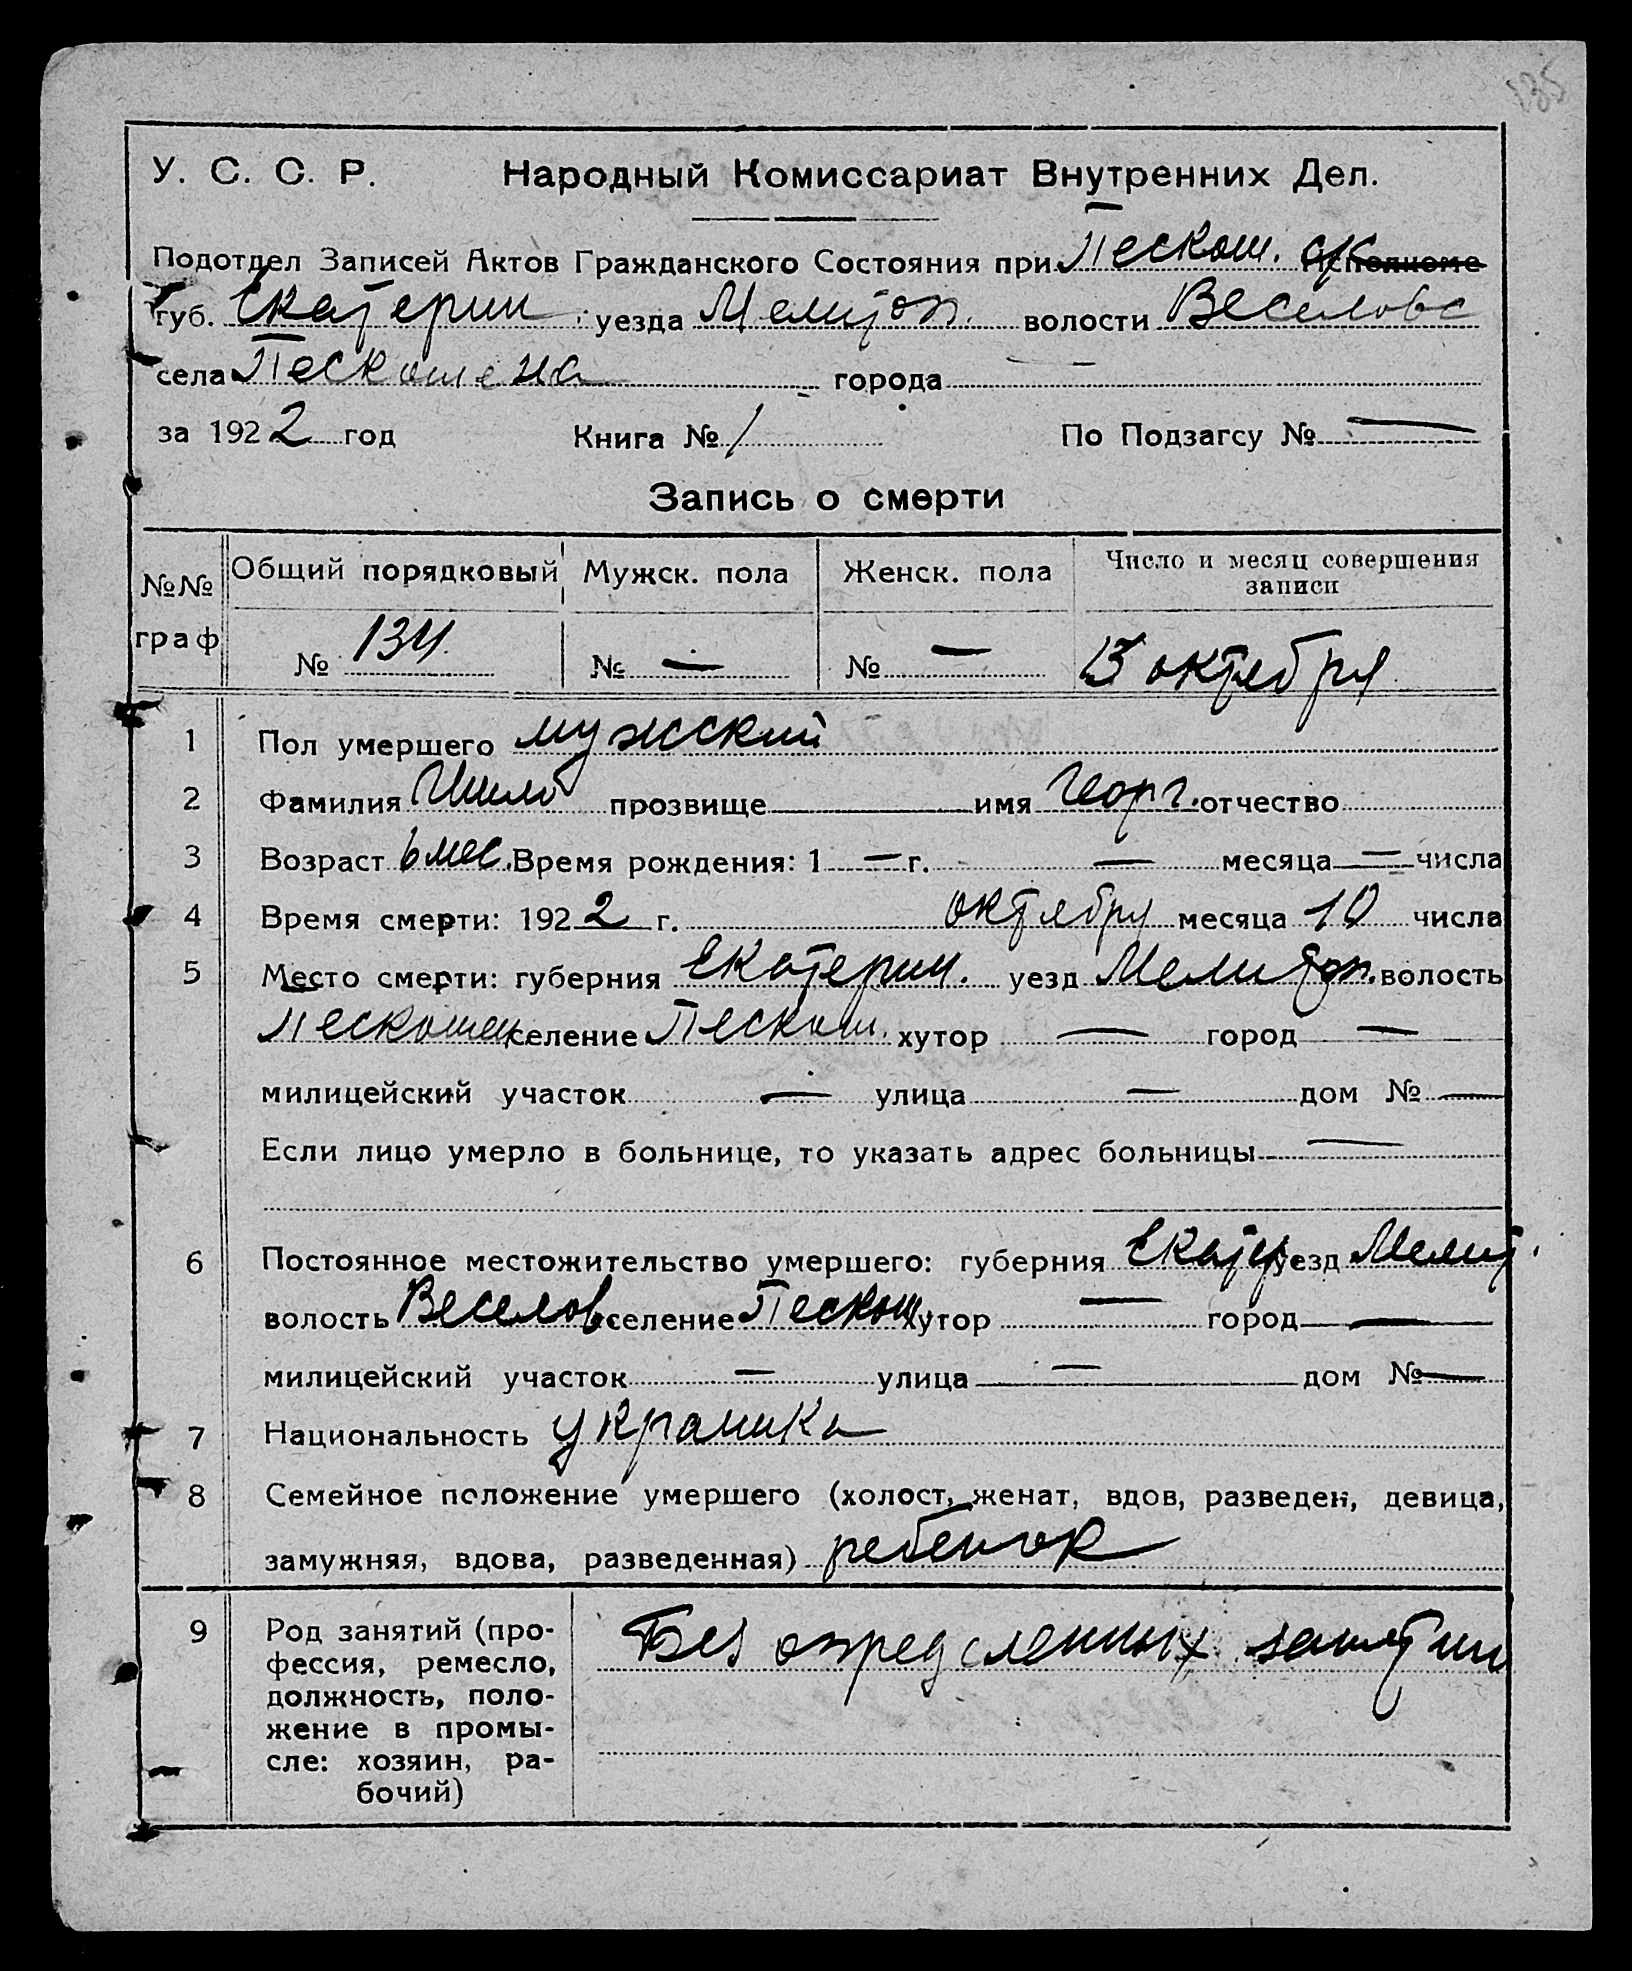 135
У. С. С. Р. Народный Комиссариат Внутренних Дел.
Подотдел Записей Актов Гражданского Состояния при Пескош. с/с Исполкоме
губ. Екатерин уезда Мелитоп. волости Веселовс
села Пескошена города —
за 1922 год Книга № 1 По Подзагсу № —
Запись о смерти
№№ граф Общий порядковый Мужск. пола Женск. пола Число и месяц совершения записи
№ 134 № — № — 15 октября
1 Пол умершего мужский
2 Фамилия Шило прозвище — имя Георг. отчество
3 Возраст 6 мес. Время рождения: 1 — г. — месяца — числа
4 Время смерти: 1922 г. октября месяца 10 числа
5 Место смерти: губерния Екатерин. уезд Мелитоп. волость
Пескошен селение Пескош. хутор — город —
милицейский участок — улица — дом № —
Если лицо умерло в больнице, то указать адрес больницы —
6 Постоянное местожительство умершего: губерния Екатер уезд Мелит.
волость Веселов селение Пескош. хутор — город —
милицейский участок — улица — дом № —
7 Национальность
8 Семейное положение умершего (холост, женат, вдов, разведен, девица,
замужняя, вдова, разведенная) ребенок
9 Род занятий (про-
фессия, ремесло,
должность, поло-
жение в промы-
сле: хозяин, ра-
бочий)
Без определенных занятий